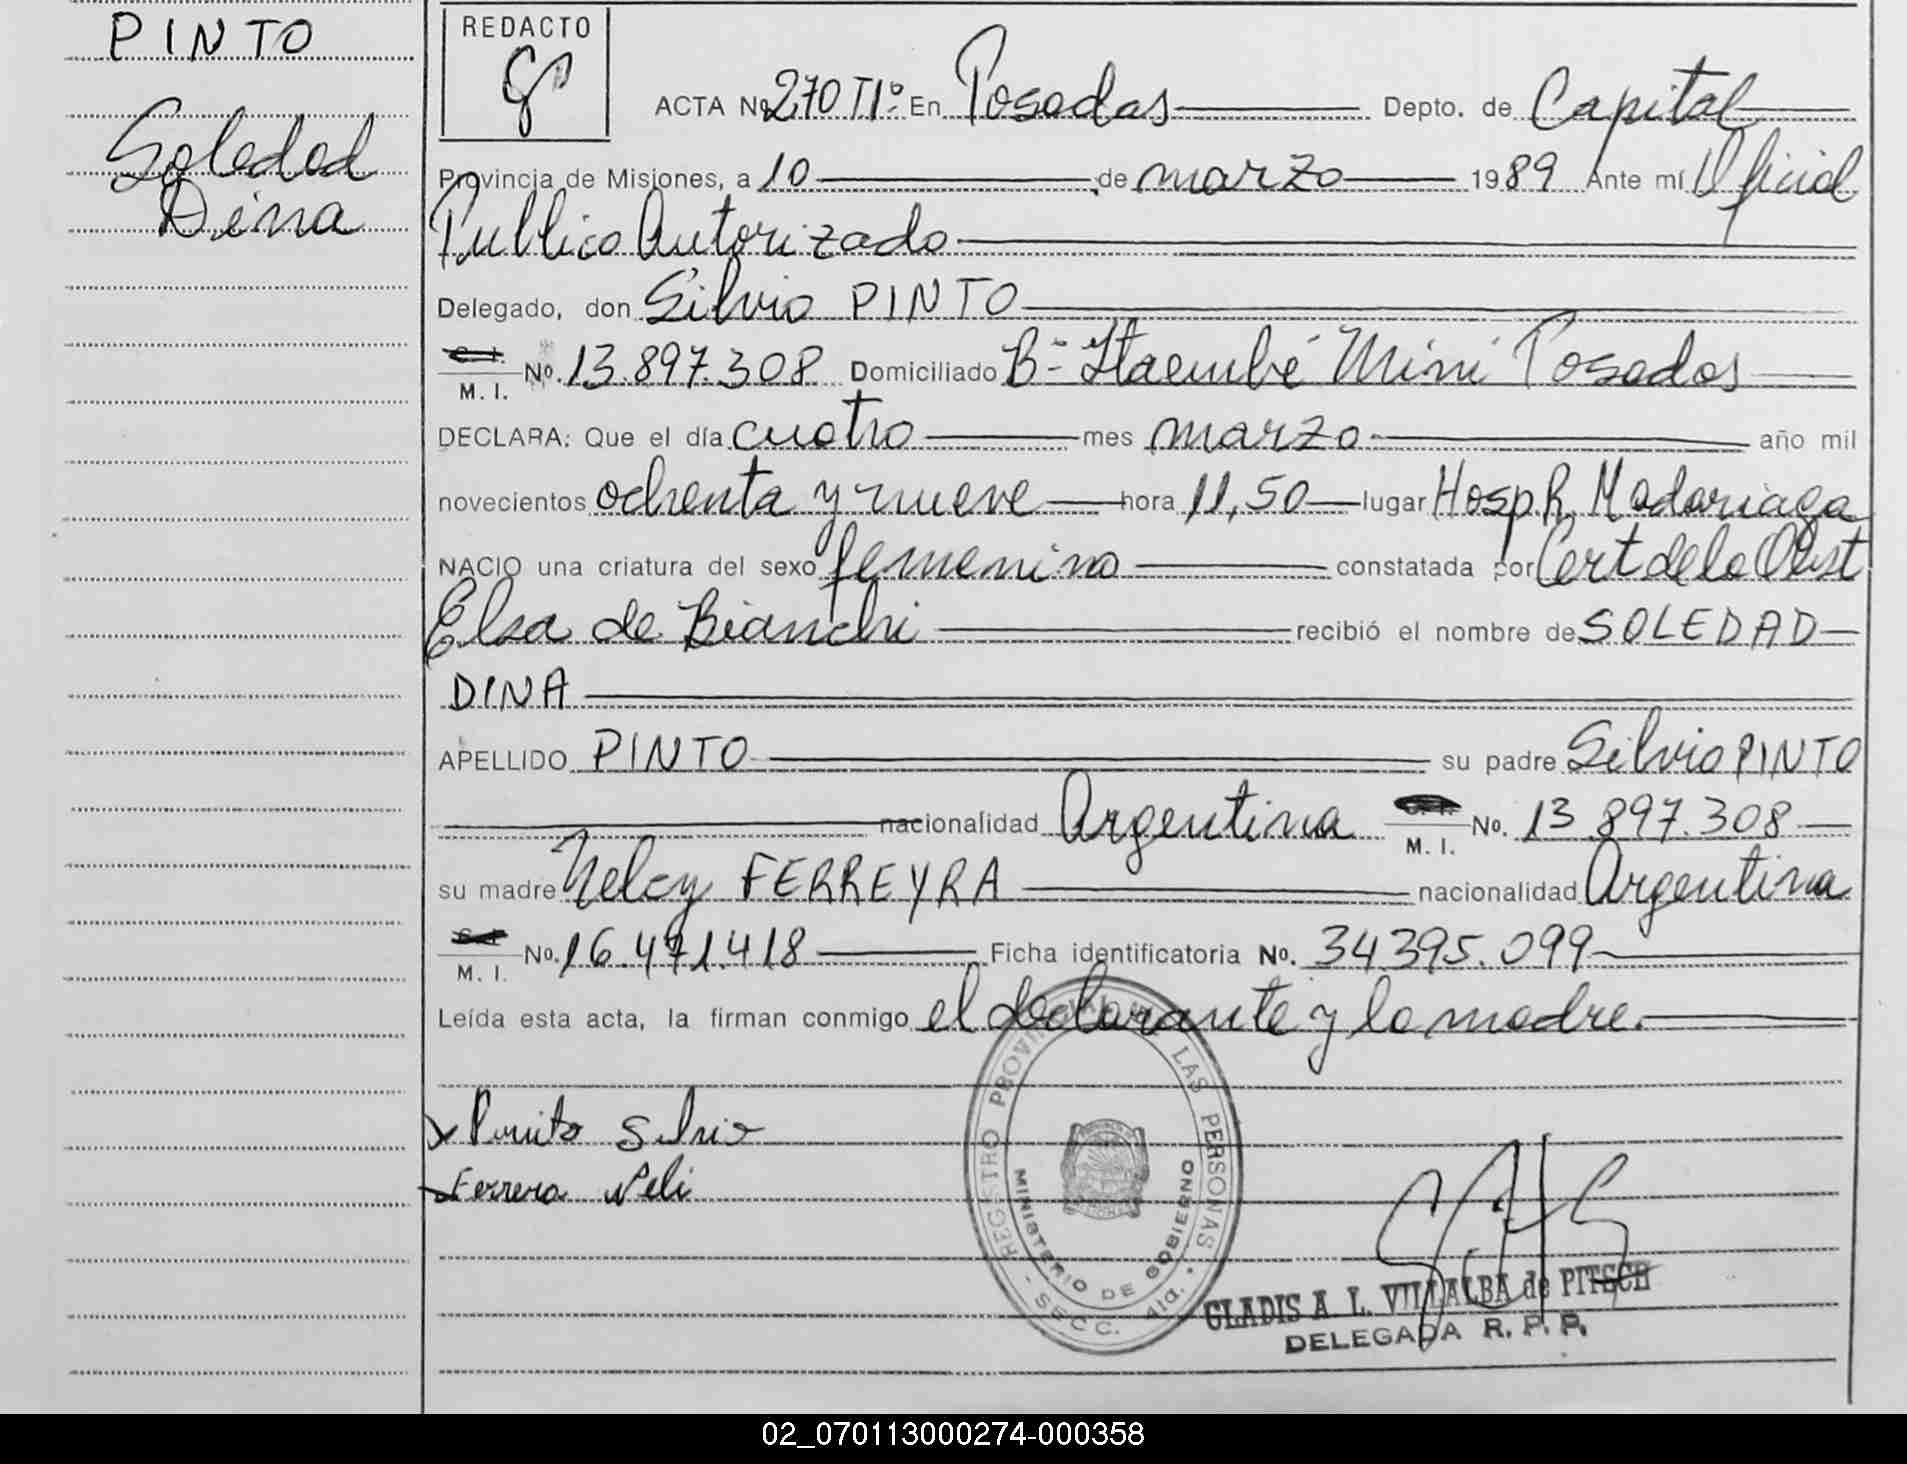 PINTO
Soledad
Dina
REDACTO
ACTA No 270 T1º En Posadas Depto. de Capital
Provincia de Misiones, a 10 de marzo 1989 Ante mí Oficial
Publico Autorizado
Delegado, don Silvio PINTO
C. I.
M. I. No. 13.897.308 Domiciliado Bº Itaembé Miní Posadas
DECLARA: Que el día cuatro mes marzo año mil
novecientos ochenta y nueve hora 11,50 lugar Hosp. R. Madariaga
NACIO una criatura del sexo femenino constatada por Cert de la Obst
Elsa de Bianchi recibió el nombre de SOLEDAD
DINA
APELLIDO PINTO su padre Silvio PINTO
nacionalidad Argentina M. I. No. 13.897.308
su madre Nelcy FERREYRA nacionalidad Argentina
M. I. No. 16.471.418 Ficha identificatoria No. 34395.099
Leída esta acta, la firman conmigo el declarante y la madre.
Silvio
Ferrera Neli
REGISTRO PROVINCIAL DE LAS PERSONAS
MINISTERIO DE GOBIERNO
SECC. 4ta.
GLADIS A. L. VILLALBA de PITSCH
DELEGADA R. P. P.
02_070113000274-000358